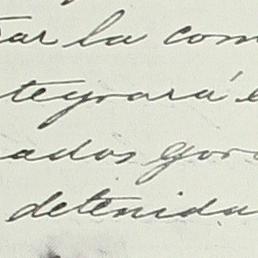 ar la com
tegrará e
ados gor
detenida